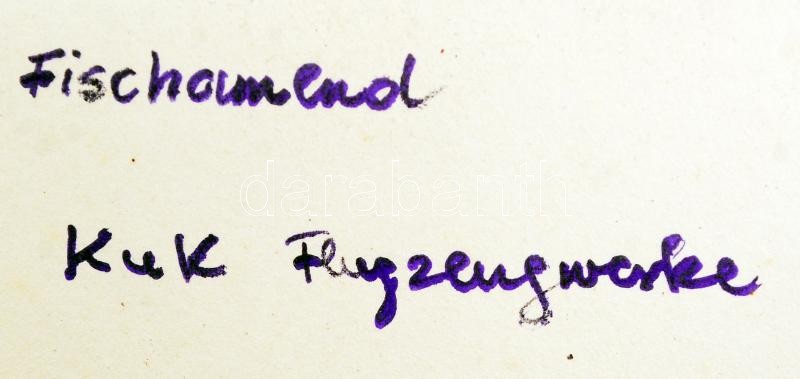 Fischamend
darabanth
KuK Flugzeugwerke